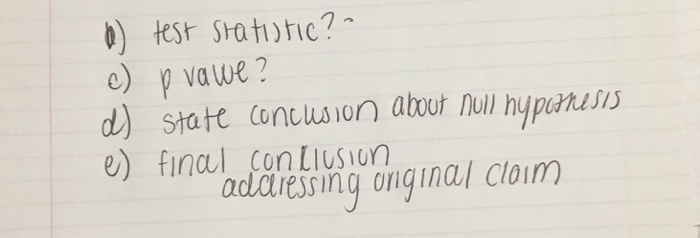 b) test statistic?
c) p value?
d) state conclusion about null hypothesis
e) final conclusion
addressing original claim